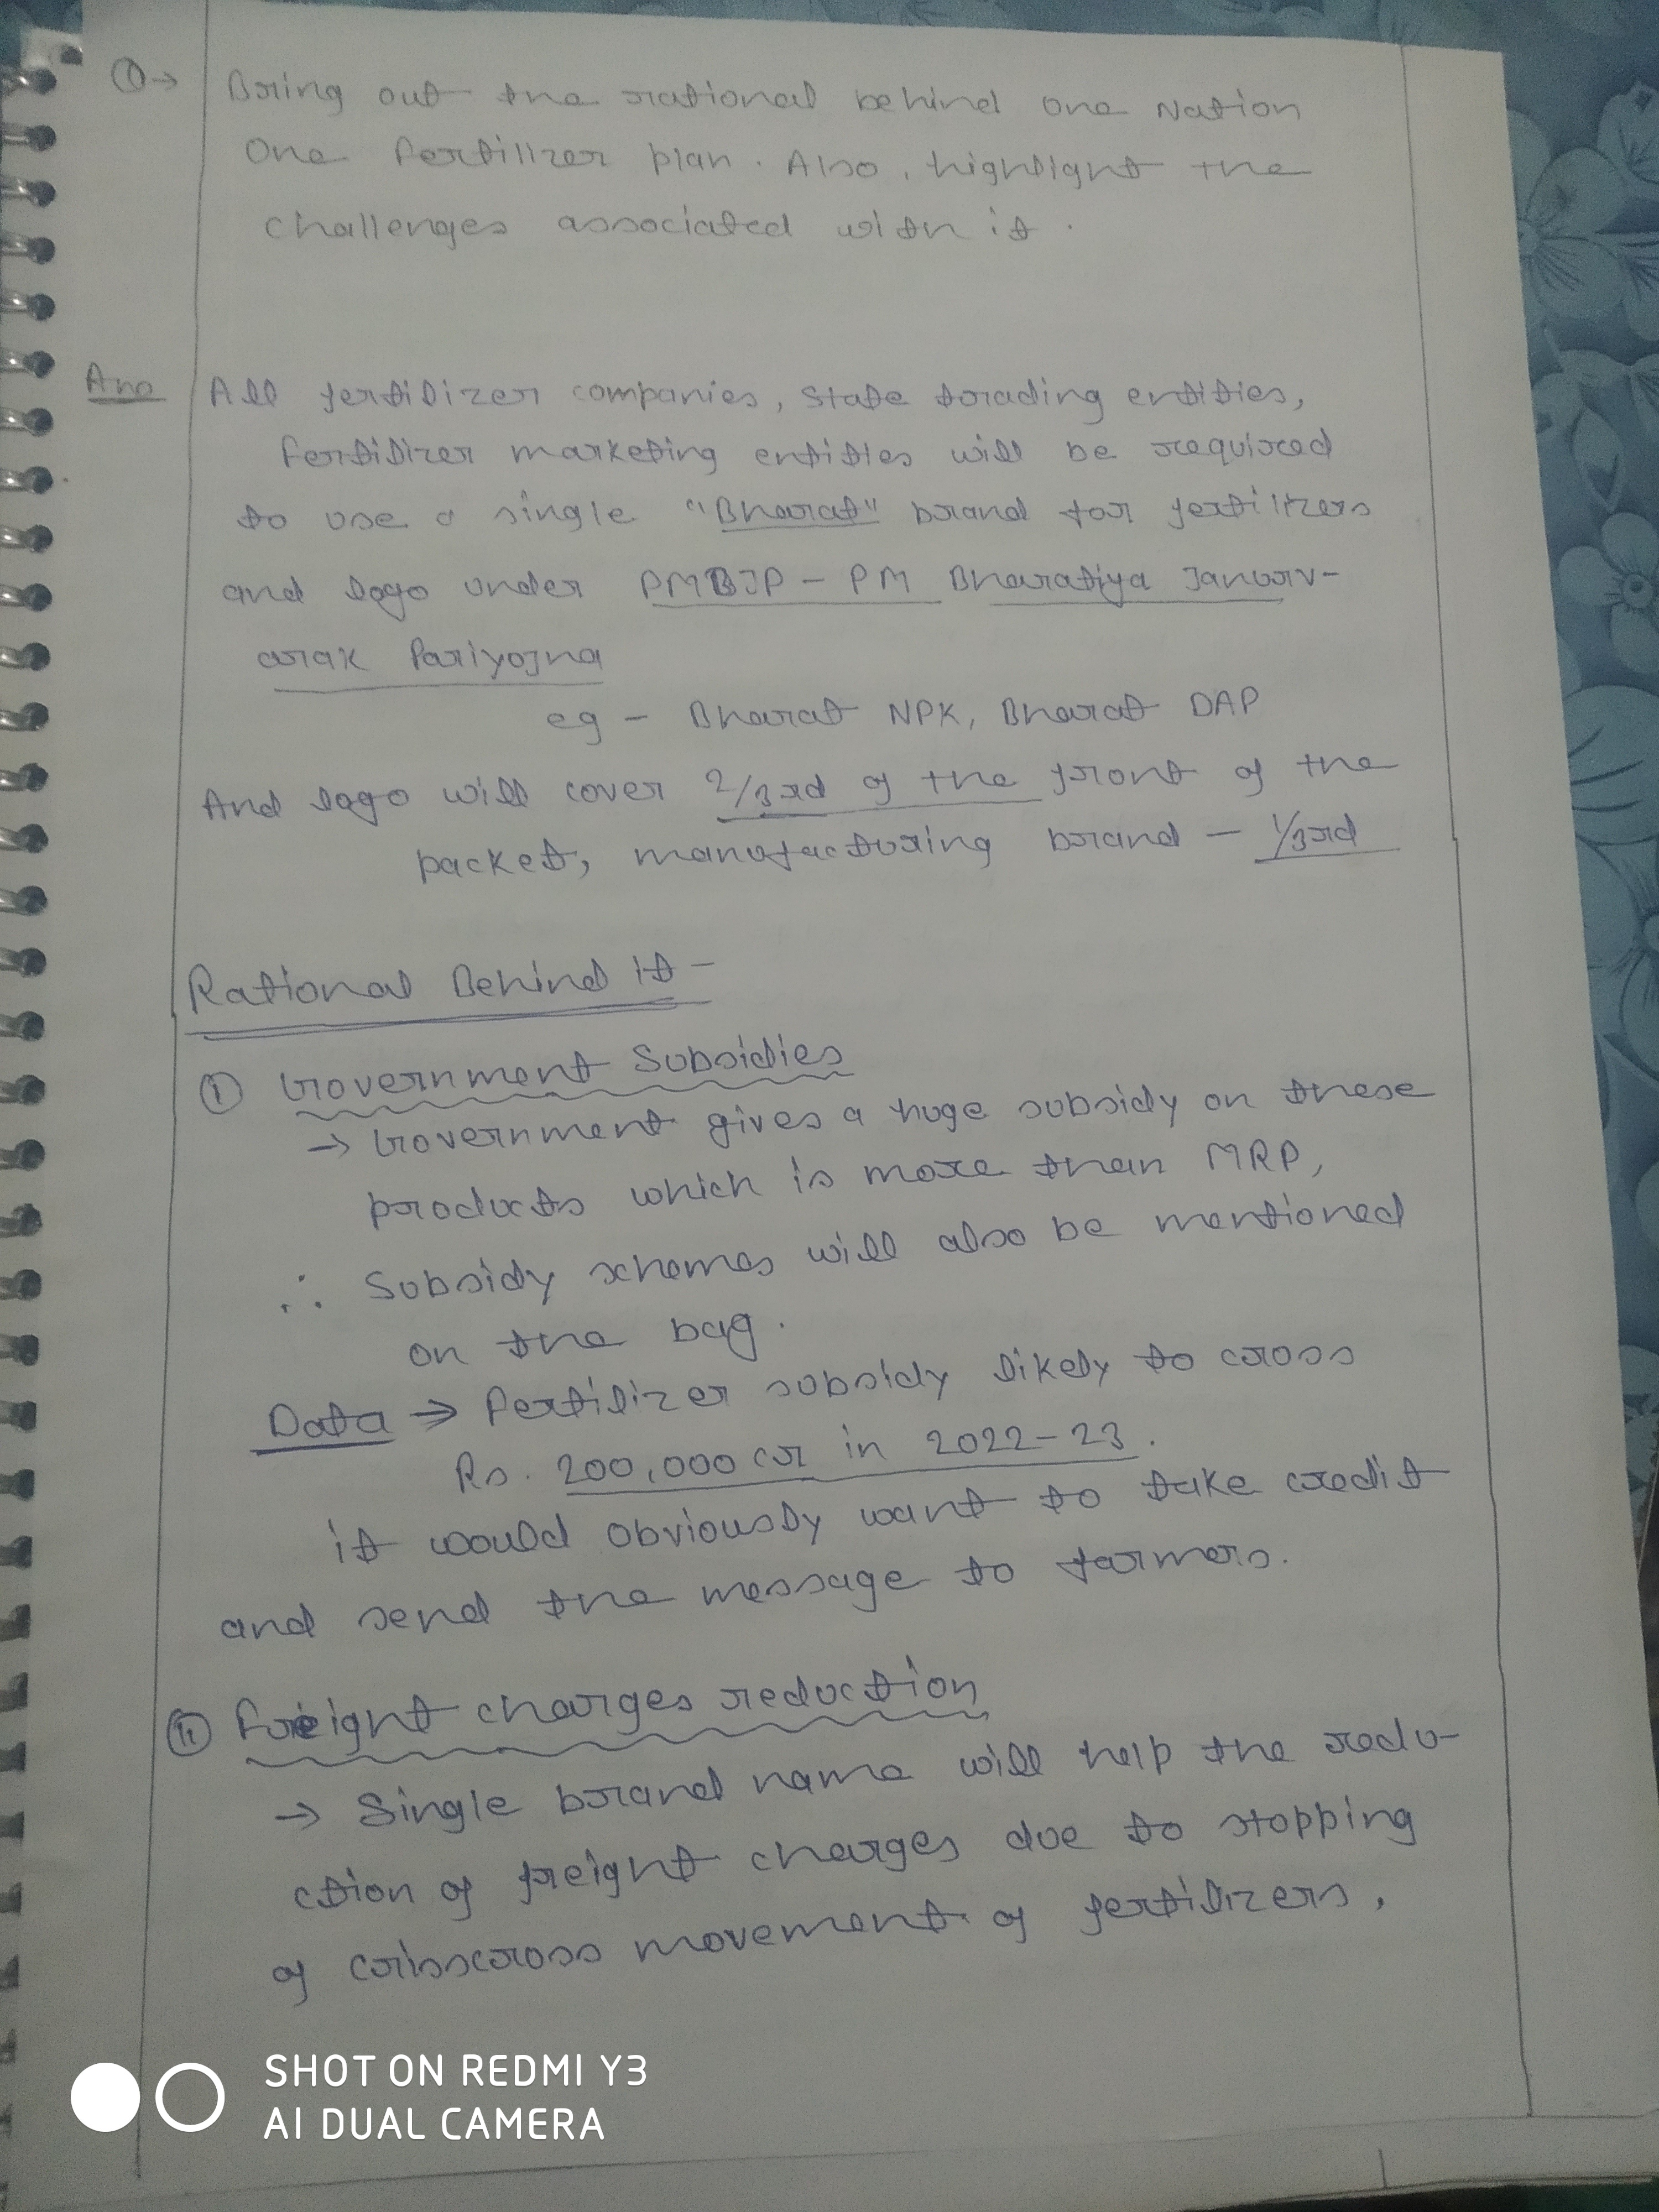 ① → Bring out the rational behind One Nation
One Fertilizer plan. Also, highlight the
challenges associated with it.
Ans All fertilizer companies, state trading entities,
fertilizer marketing entities will be required
to use a single "Bharat" brand for fertilizers
and logo under PMBJP - PM Bharatiya Janurv-
arak Pariyojna
eg - Bharat NPK, Bharat DAP
And logo will cover 2/3rd of the front of the
packet, manufacturing brand - 1/3rd
Rational Behind it -
① Government Subsidies
→ Government gives a huge subsidy on these
products which is more than MRP,
∴ Subsidy schemes will also be mentioned
on the bag.
Data → Fertilizer subsidy likely to cross
Rs. 200,000 cr in 2022-23.
it would obviously want to take credit
and send the message to farmers.
⑪ Freight charges reduction
→ Single brand name will help the redu-
ction of freight charges due to stopping
of crisscross movement of fertilizers,
SHOT ON REDMI Y3
AI DUAL CAMERA